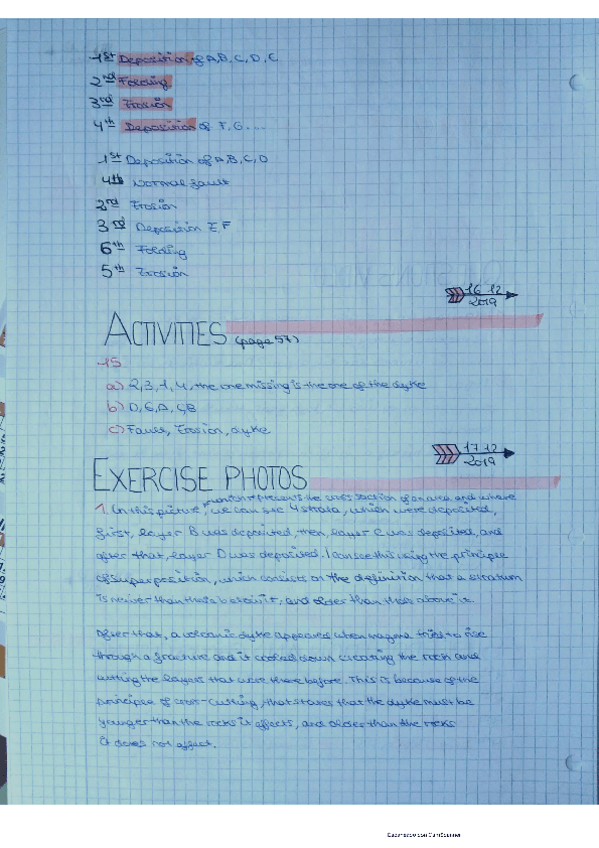 1st Deposition of A, B, C, D, E
2nd Folding
3rd Erosion
4th Deposition of F, G...
1st Deposition of A, B, C, D
4th Normal fault
2nd Erosion
3rd Deposition E, F
6th Folding
5th Erosion
16-12
2019
ACTIVITIES (page 57)
15
a) 2, 3, 1, 4, the one missing is the one of the dyke
b) D, C, A, B
c) Fault, Erosion, dyke
17-12
2019
EXERCISE PHOTOS
represents the cross section of an area and where
1. In this picture, we can see 4 strata, which were deposited,
first, layer B was deposited, then, layer C was deposited, and
after that, layer D was deposited. I can see this using the principle
of superposition, which consists on the definition that a stratum
is newer than those below it, and older than those above it.
After that, a volcanic dyke appeared when magma tried to rise
through a fracture and it cooled down creating the rock and
cutting the layers that were there before. This is because of the
principle of cross-cutting, that states that the dyke must be
younger than the rocks it affects, and older than the rocks
it does not affect.
Escaneado con CamScanner